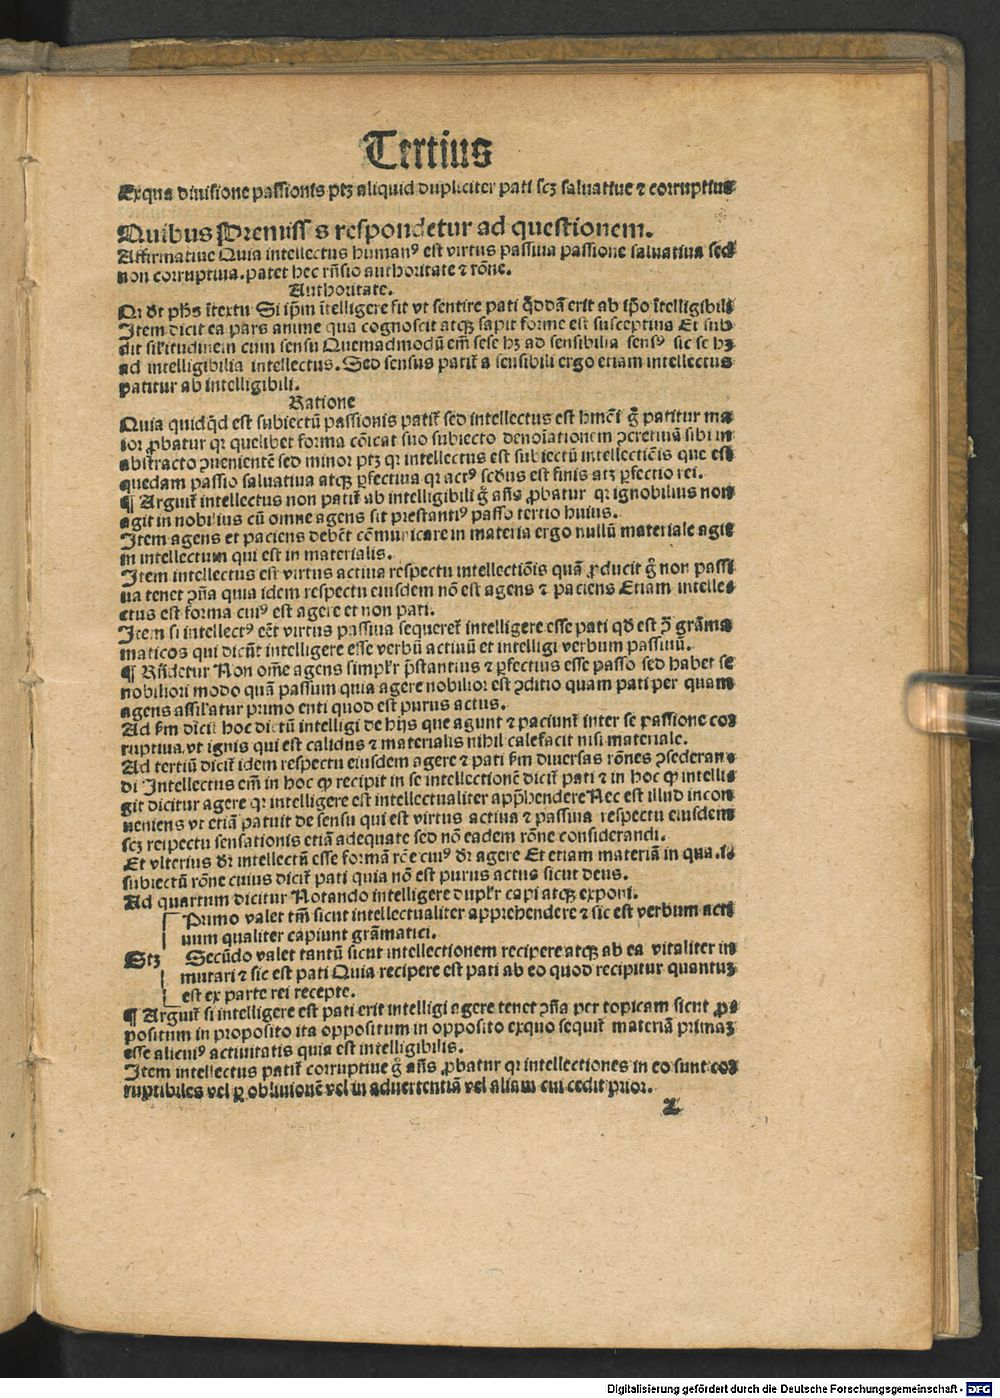 Tertius
Exqua diuisione passionis ptꝫ aliquid dupliciter pati scꝫ saluatiue ⁊ corruptiue
Quibus Premiss s respondetur ad questionem.
Affirmatiue Quia intellectus humanꝰ est virtus passiua passione saluatiua sed
non corruptiua. patet hec rñsio authoritate ⁊ rōne.
Authoritate.
Qꝛ dt phs ītextu Si ip̄m ītelligere sit vt sentire pati qd̄dā erit ab ip̄o ītelligibili
Item dicit ea pars anime qua cognoscit atqꝫ sapit forme est susceptiua Et sub
dit sil'itudinem cum sensu Quemadmodū em̄ sese hꝫ ad sensibilia sensꝰ sic se hꝫ
ad intelligibilia intellectus. Sed sensus patit᷑ a sensibili ergo etiam intellectus
patitur ab intelligibili.
Ratione
Quia quidqd̄ est subiectū passionis patit᷑ sed intellectus est hm̄oi g̊ patitur ma
ior ꝓbatur qꝛ quelibet forma cōicat suo subiecto denoīationem ꝯcretiuā sibi in
abstracto ꝯuenientē sed minor ptꝫ qꝛ intellectus est subiectū intellectiōis que est
quedam passio saluatiua atqꝫ ꝑfectiua qꝛ actꝰ scd̄us est finis atꝫ ꝑfectio rei.
¶ Arguit᷑ intellectus non patit᷑ ab intelligibili g̊ añs ꝓbatur qꝛ ignobilius non
agit in nobilius cū omne agens sit prestantiꝰ passo tertio huius.
Item agens et paciens debēt cōmunicare in materia ergo nullū materiale agit
in intellectum qui est in materialis.
Item intellectus est virtus actiua respectu intellectiōis quā ꝓducit g̊ non passi
ua tenet ꝯña quia idem respectu eiusdem nō est agens ⁊ paciens Etiam intelle⸗
ctus est forma cuiꝰ est agere et non pati.
Item si intellectꝰ eēt virtus passiua sequeret᷑ intelligere esse pati qd̄ est ꝯ̄ grāma
maticos qui dicūt intelligere esse verbū actiuū et intelligi verbum passiuū.
¶ Rñdetur Non om̄e agens simpl'r p̄stantius ⁊ ꝑfectius esse passo sed habet se
nobiliori modo quā passum quia agere nobilior est ꝯditio quam pati per quam
agens assil'atur primo enti quod est purus actus.
Ad sm̄ dicit᷑ hoc dictū intelligi de hijs que agunt ⁊ paciunt᷑ inter se passione cor
ruptiua. vt ignis qui est calidus ⁊ materialis nihil calefacit nisi materiale.
Ad tertiū dicit᷑ idem respectu eiusdem agere ⁊ pati sm̄ diuersas rōnes ꝯsederan⸗
di Intellectus em̄ in hoc ꝙ recipit in se intellectionē dicit᷑ pati ⁊ in hoc ꝙ intelli⸗
git dicitur agere qꝛ intelligere est intellectualiter app̄hendere Nec est illud incon
ueniens vt etiā patuit de sensu qui est virtus actiua ⁊ passiua respectu eiusdem
scꝫ respectu sensationis etiā adequate sed nō eadem rōne considerandi.
Et vlterius dr̄ intellectū esse formā rōe cuiꝰ dr̄ agere Et etiam materiā in qua.i.
subiectū rōne cuius dicit᷑ pati quia nō est purus actus sicut deus.
Ad quartum dicitur Notando intelligere dupl'r capi atqꝫ exponi.
Primo valet tm̄ sicut intellectualiter apprehendere ⁊ sic est verbum acti
uum qualiter capiunt grāmatici.
Stꝫ Secūdo valet tantū sicut intellectionem recipere atqꝫ ab ea vitaliter in
mutari ⁊ sic est pati Quia recipere est pati ab eo quod recipitur quantuꝫ
est ex parte rei recepte.
¶ Arguit᷑ si intelligere est pati erit intelligi agere tenet ꝯña per topicam sicut ꝓ⸗
positum in proposito ita oppositum in opposito exquo sequit᷑ materiā primaꝫ
esse alicuiꝰ actiuitatis quia est intelligibilis.
Item intellectus patit᷑ corruptiue g̊ añs ꝓbatur qꝛ intellectiones in eo sunt cor
ruptibiles vel ꝑ obliuionē vel in aduertentiā vel aliam cui cedit prior.
2
Digitalisierung gefördert durch die Deutsche Forschungsgemeinschaft - DFG